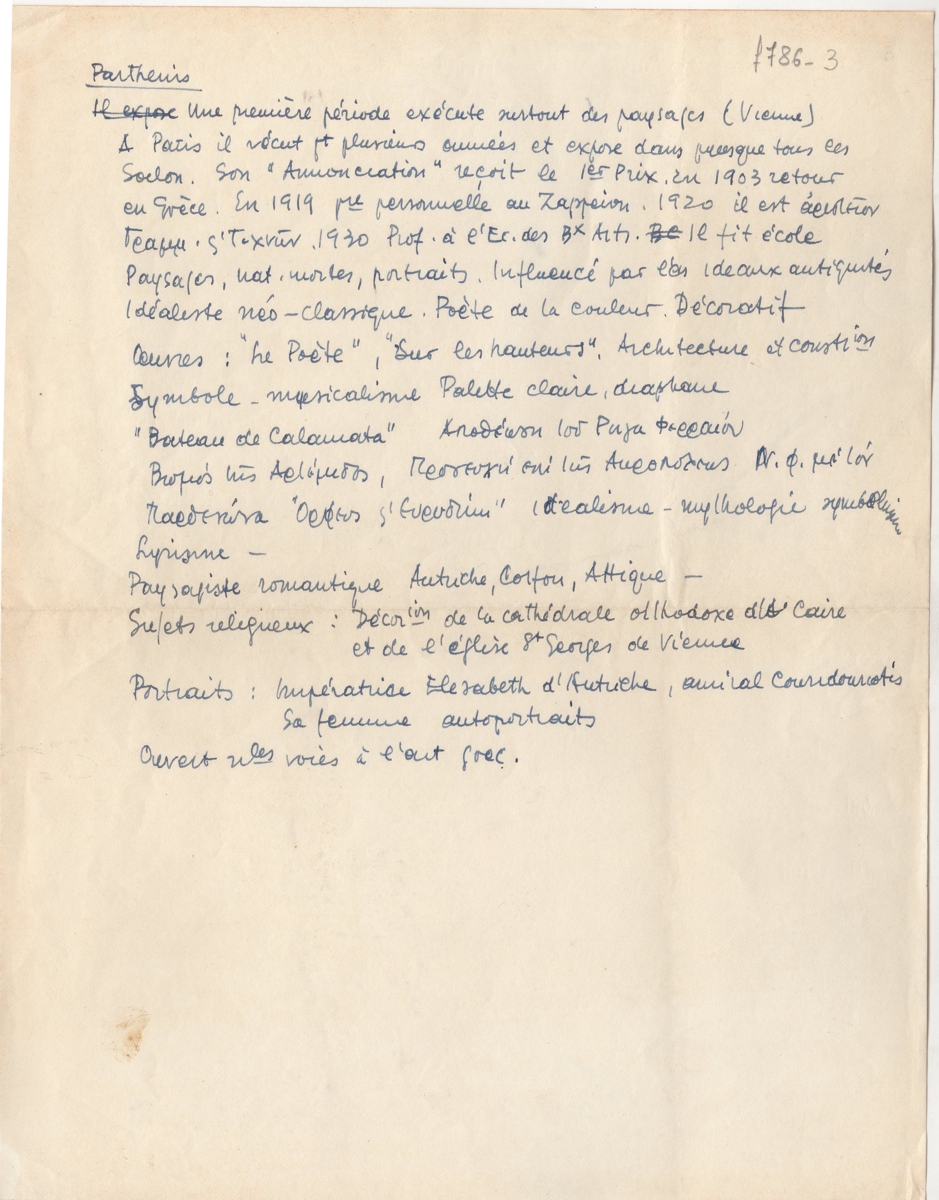 f786-3
Parthenis
Il expose Une première période exécute surtout des paysages (Vienne)
A Paris il vécut pt plusieurs années et expose dans presque tous les
Salon. Son "Annonciation" reçoit le 1er Prix. En 1903 retour
en Grèce. En 1919 pre personnelle au Zappeion. 1920 il est ἀριστεῖον
Γραμμ. ς' Τεχνῶν. 1930 Prof. à l'Ec. des Bx Arts. Il fit école
Paysages, nat. mortes, portraits. Influencé par les ideaux antiquités
Idéaliste néo-classique. Poète de la couleur. Décoratif
Œuvres : "Le Poète", "Sur les hauteurs". Architecture et constion
Symbole - musicalisme Palette claire, diaphane
"Bateau de Calamata" Αποθέωση του Ρηγα Φερραίου
Βωμός της Αρτέμιδος, Προσευχή επί της Ακροπόλεως Ν. φ. μὲ τόν
Παρθενώνα "Ορφεύς ς' Ευρυδίκη" idealisme - mythologie symbolisme
Lyrisme -
Paysagiste romantique Autriche, Corfou, Attique -
Sujets religieux : Décorion de la cathédrale orthodoxe du Caire
et de l'église St Georges de Vienne
Portraits : Impératrice Elesabeth d'Autriche, amiral Coundouriotis
Sa femme autoportraits
Ouvert nles voies à l'art grec.